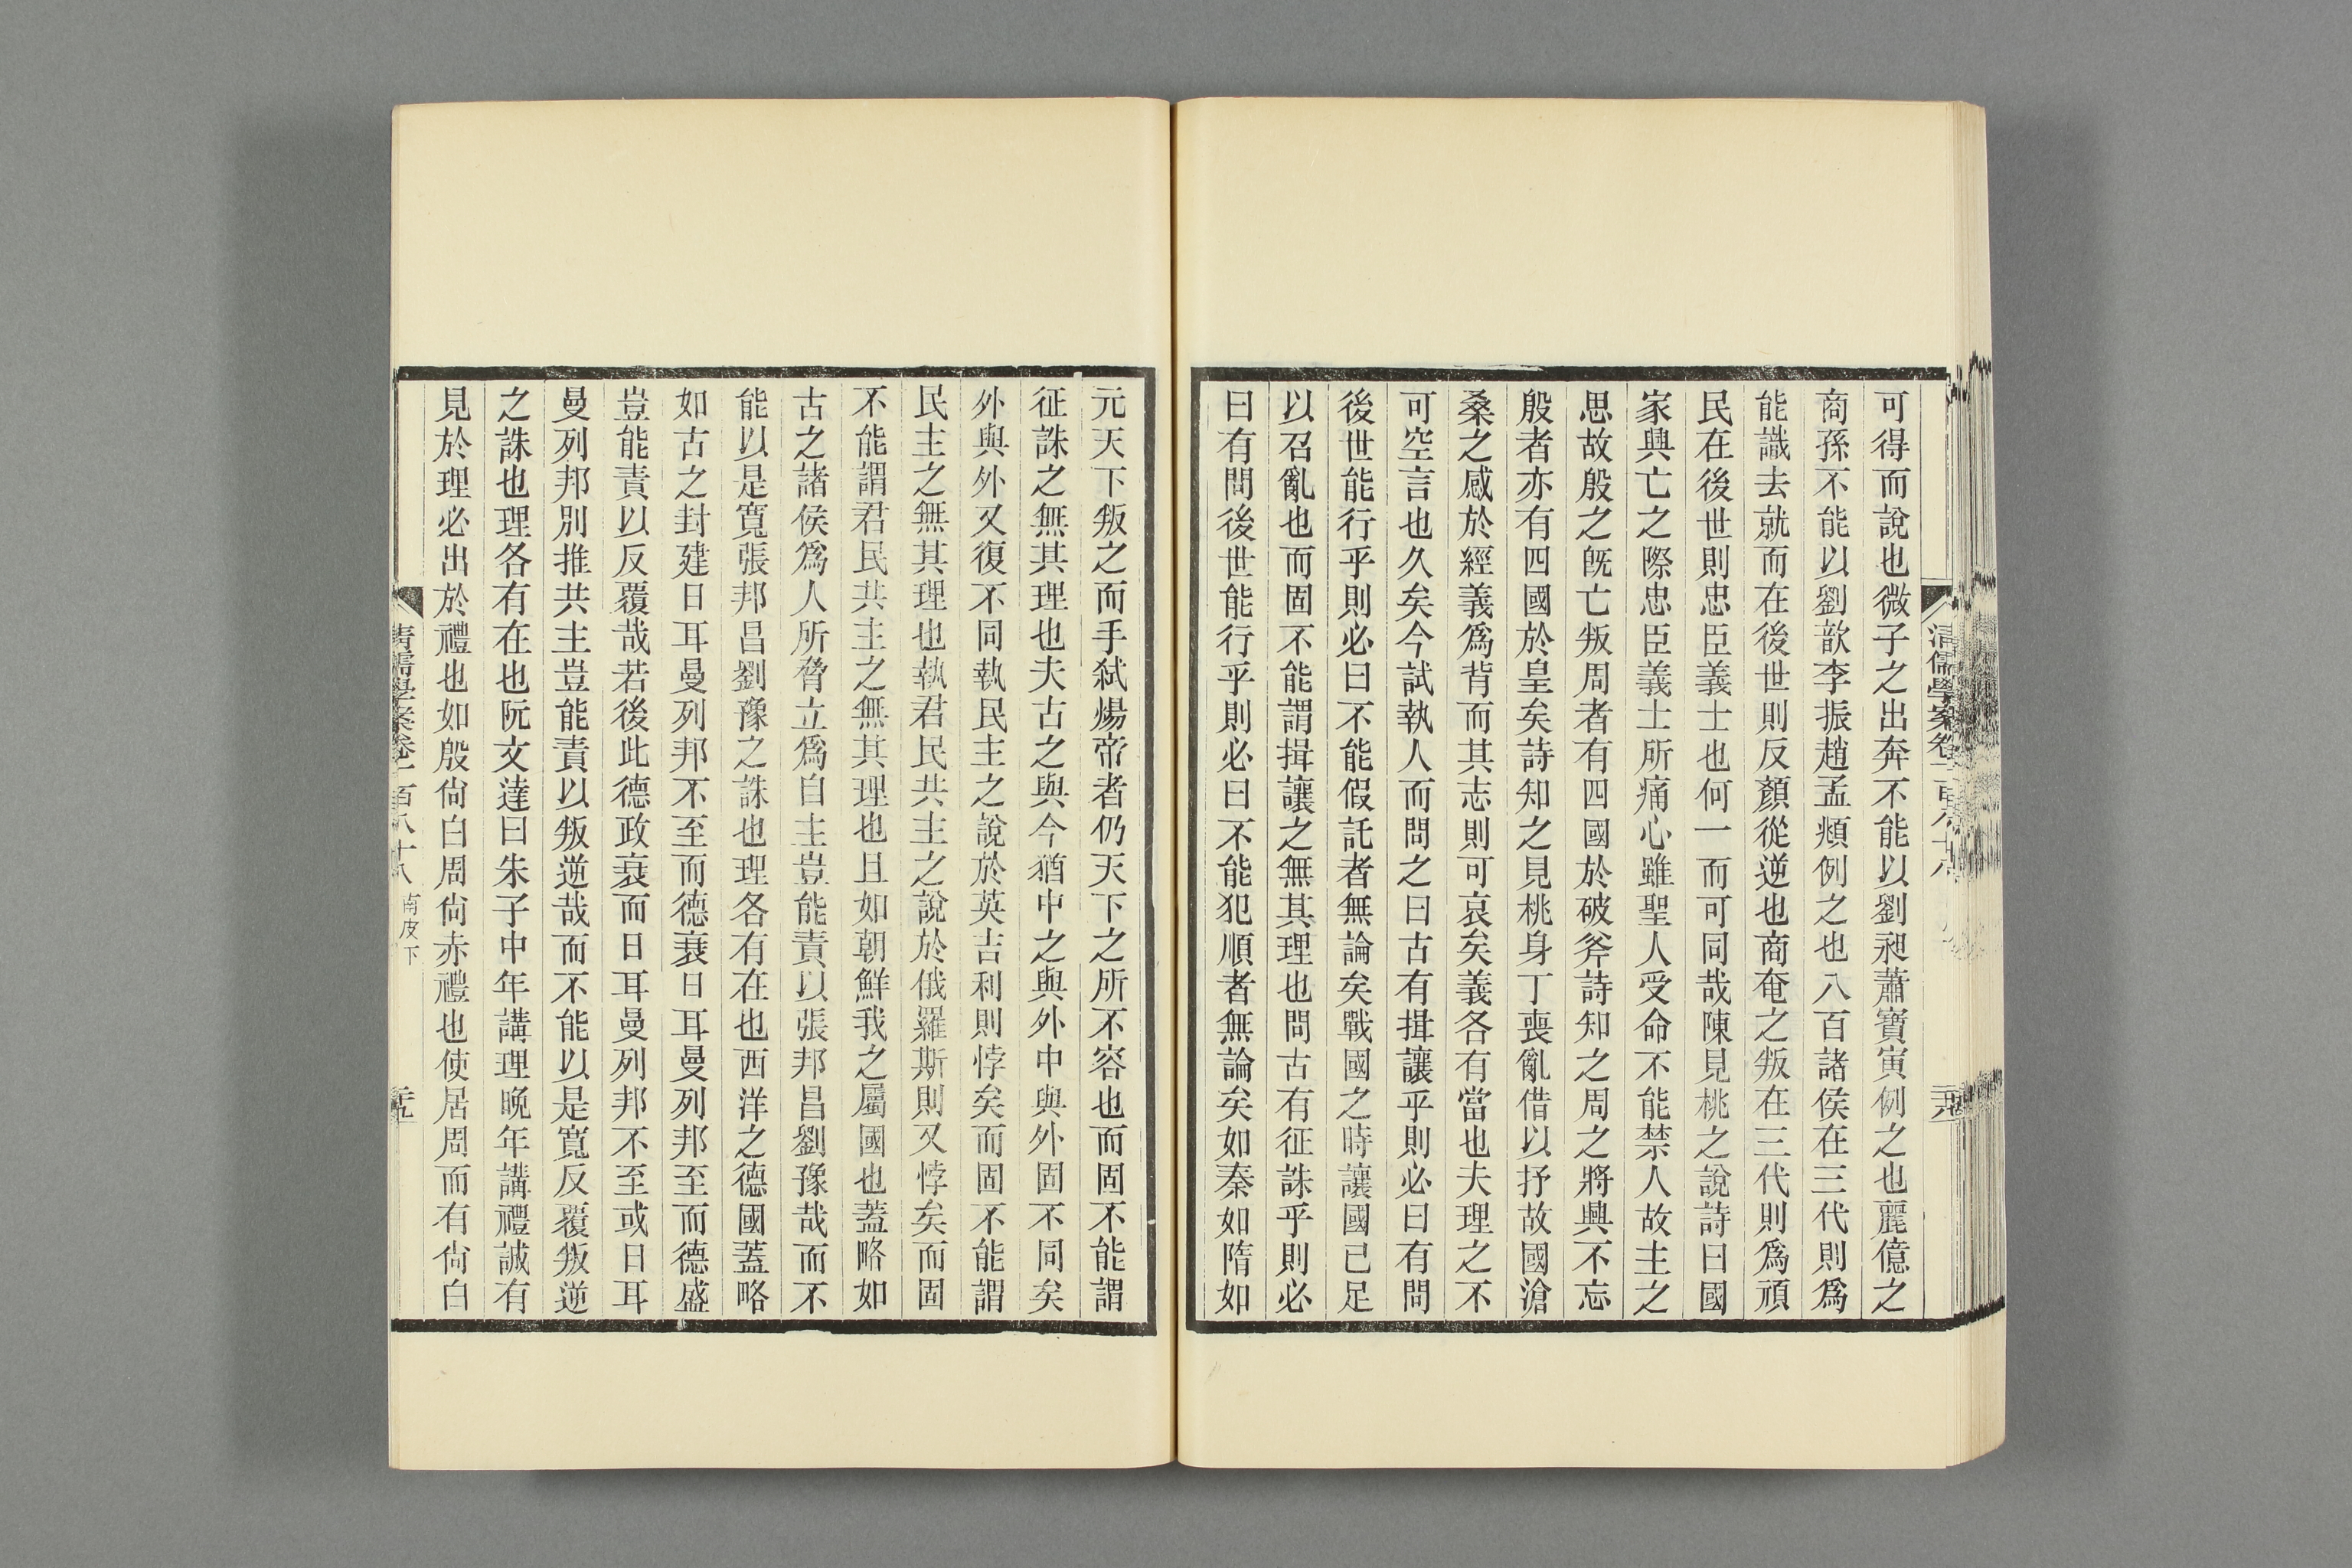 可得而說也微子之出奔不能以劉昶蕭寶寅例之也麗億之
商孫不能以劉歆李振趙孟頫例之也八百諸侯在三代則爲
能識去就而在後世則反顏從逆也商奄之叛在三代則爲頑
民在後世則忠臣義士也何一而可同哉陳見桃之說詩曰國
家興亡之際忠臣義士所痛心雖聖人受命不能禁人故主之
思故殷之旣亡叛周者有四國於破斧詩知之周之將興不忘
殷者亦有四國於皇矣詩知之見桃身丁喪亂借以抒故國滄
桑之感於經義爲背而其志則可哀矣義各有當也夫理之不
可空言也久矣今試執人而問之曰古有揖讓乎則必曰有問
後世能行乎則必曰不能假託者無論矣戰國之時讓國已足
以召亂也而固不能謂揖讓之無其理也問古有征誅乎則必
曰有問後世能行乎則必曰不能犯順者無論矣如秦如隋如
元天下叛之而手弑煬帝者仍天下之所不容也而固不能謂
征誅之無其理也夫古之與今猶中之與外中與外固不同矣
外與外又復不同執民主之說於英吉利則悖矣而固不能謂
民主之無其理也執君民共主之說於俄羅斯則又悖矣而固
不能謂君民共主之無其理也且如朝鮮我之屬國也蓋略如
古之諸侯爲人所脅立爲自主豈能責以張邦昌劉豫哉而不
能以是寬張邦昌劉豫之誅也理各有在也西洋之德國蓋略
如古之封建日耳曼列邦不至而德衰日耳曼列邦至而德盛
豈能責以反覆哉若後此德政衰而日耳曼列邦不至或日耳
曼列邦別推共主豈能責以叛逆哉而不能以是寬反覆叛逆
之誅也理各有在也阮文達曰朱子中年講理晚年講禮誠有
見於理必出於禮也如殷尙白周尙赤禮也使居周而有尙白
清儒學案卷一百八十八 南皮下